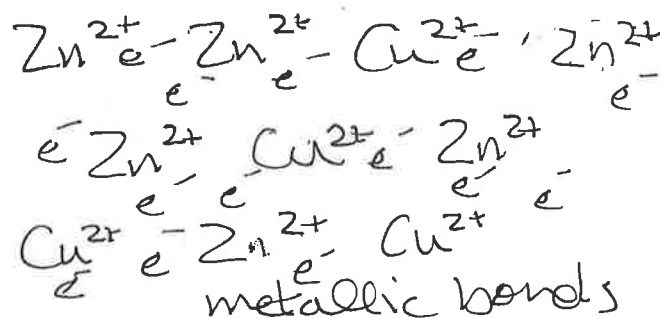 Zn²⁺ e⁻ Zn²⁺ e⁻ Cu²⁺ e⁻ Zn²⁺
e⁻ e⁻
e⁻ Zn²⁺ Cu²⁺ e⁻ Zn²⁺
e⁻ e⁻ e⁻ e⁻
Cu²⁺ e⁻ Zn²⁺ e⁻ Cu²⁺
e⁻
metallic bonds